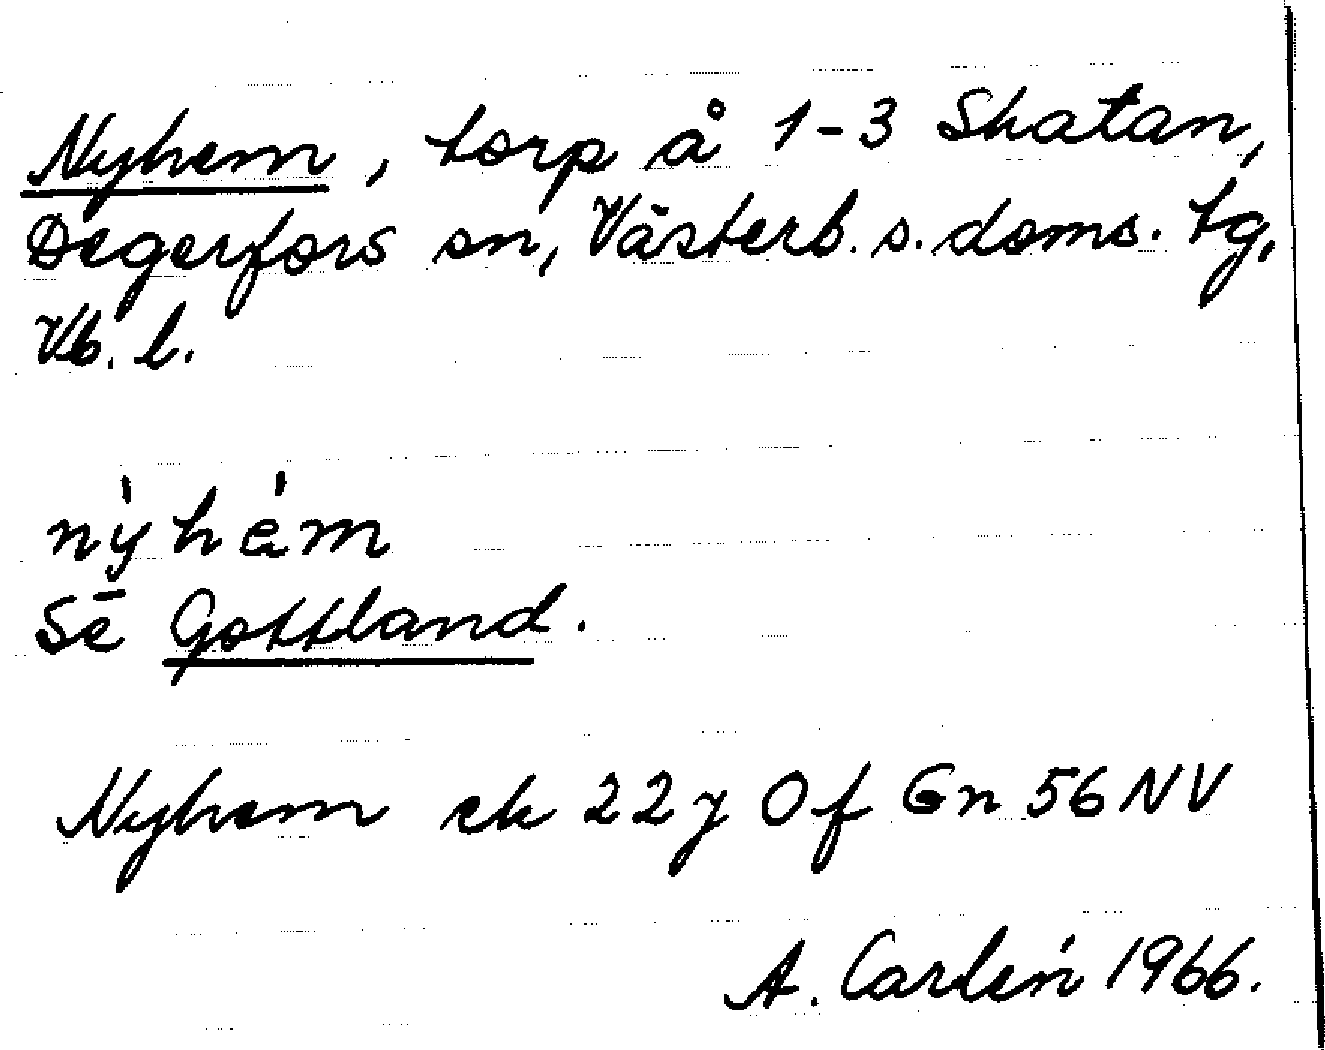 Nyhem, torp å 1-3 Skatan,
Degerfors sn, Västerb. s. doms. tg,
Vb. l.
nỳhém
Sē Gottland.
Nyhem ek 22 y Of Gn 56 NV
A. Carlén 1966.